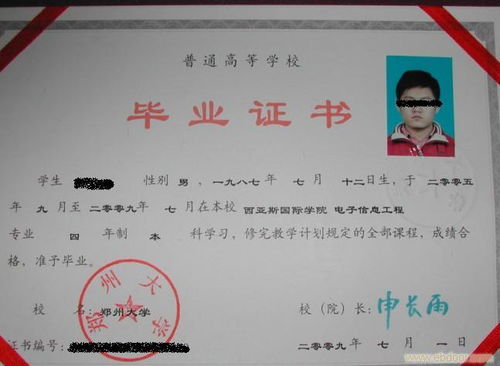 普通高等学校
毕业证书
学生 性别 男，一九八七年 七月 十二日生，于 二〇〇五
年 九月至 二〇〇九年 七月在本校 西亚斯国际学院 电子信息工程
专业 四 年制 本 科学习，修完教学计划规定的全部课程，成绩合
格，准予毕业。
郑州大学
校 名：郑州大学 校（院）长：申长雨
证书编号： 二〇〇九年 七月 一日
www.ebdoor.com